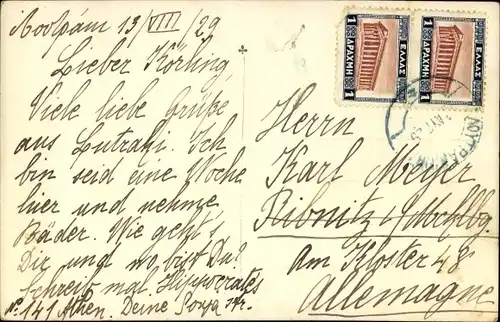 13/VIII/29
Lieber
Viele liebe Grüße
aus Lutraki. Ich
bin seid eine Woche
hier und nehme
Bäder. Wie geht's
Dir und wo bist Du?
Schreib mal. Hippocrates
No. 141 Athen. Deine
Herrn
Karl Meyer
Ribnitz i/Mcklbg.
Am Kloster 48
Allemagne
1 ΔΡΑΧΜΗ 1
ΕΛΛΑΣ
1 ΔΡΑΧΜΗ 1
ΕΛΛΑΣ